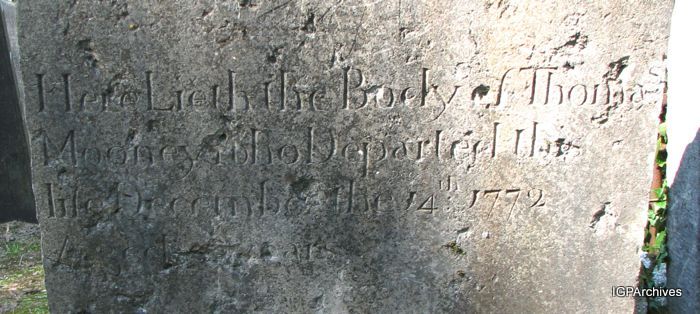 Here Lieth the Body of Thomas
Mooney who Departed this
life December the 14th 1772
Aged years
IGPArchives